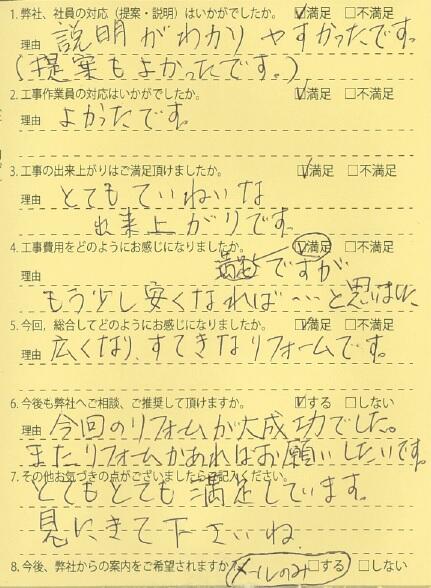 1. 弊社、社員の対応（提案・説明）はいかがでしたか。 ☑満足 □不満足
理由 説明がわかりやすかったです。
(提案もよかったです。)
2. 工事作業員の対応はいかがでしたか。 ☑満足 □不満足
理由 よかったです。
3. 工事の出来上がりはご満足頂けましたか。 ☑満足 □不満足
理由 とてもていねいな
出来上がりです。
4. 工事費用をどのようにお感じになりましたか。 ☑満足 □不満足
理由 ですが
もう少し安くなれば…と思いました
5. 今回、総合してどのようにお感じになりましたか。 ☑満足 □不満足
理由 広くなり、すてきなリフォームです。
6. 今後も弊社へご相談、ご推奨して頂けますか。 ☑する □しない
理由 今回のリフォームが大成功でした。
またリフォームがあればお願いしたいです。
7. その他お気づきの点がございましたらご記入ください。
とてもとても満足しています。
見にきて下さいね
8. 今後、弊社からの案内をご希望されますか？ メールのみ □する □しない